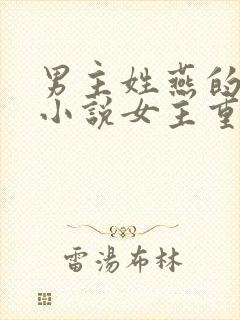 男主姓燕的
小说女主重
雷湯布林